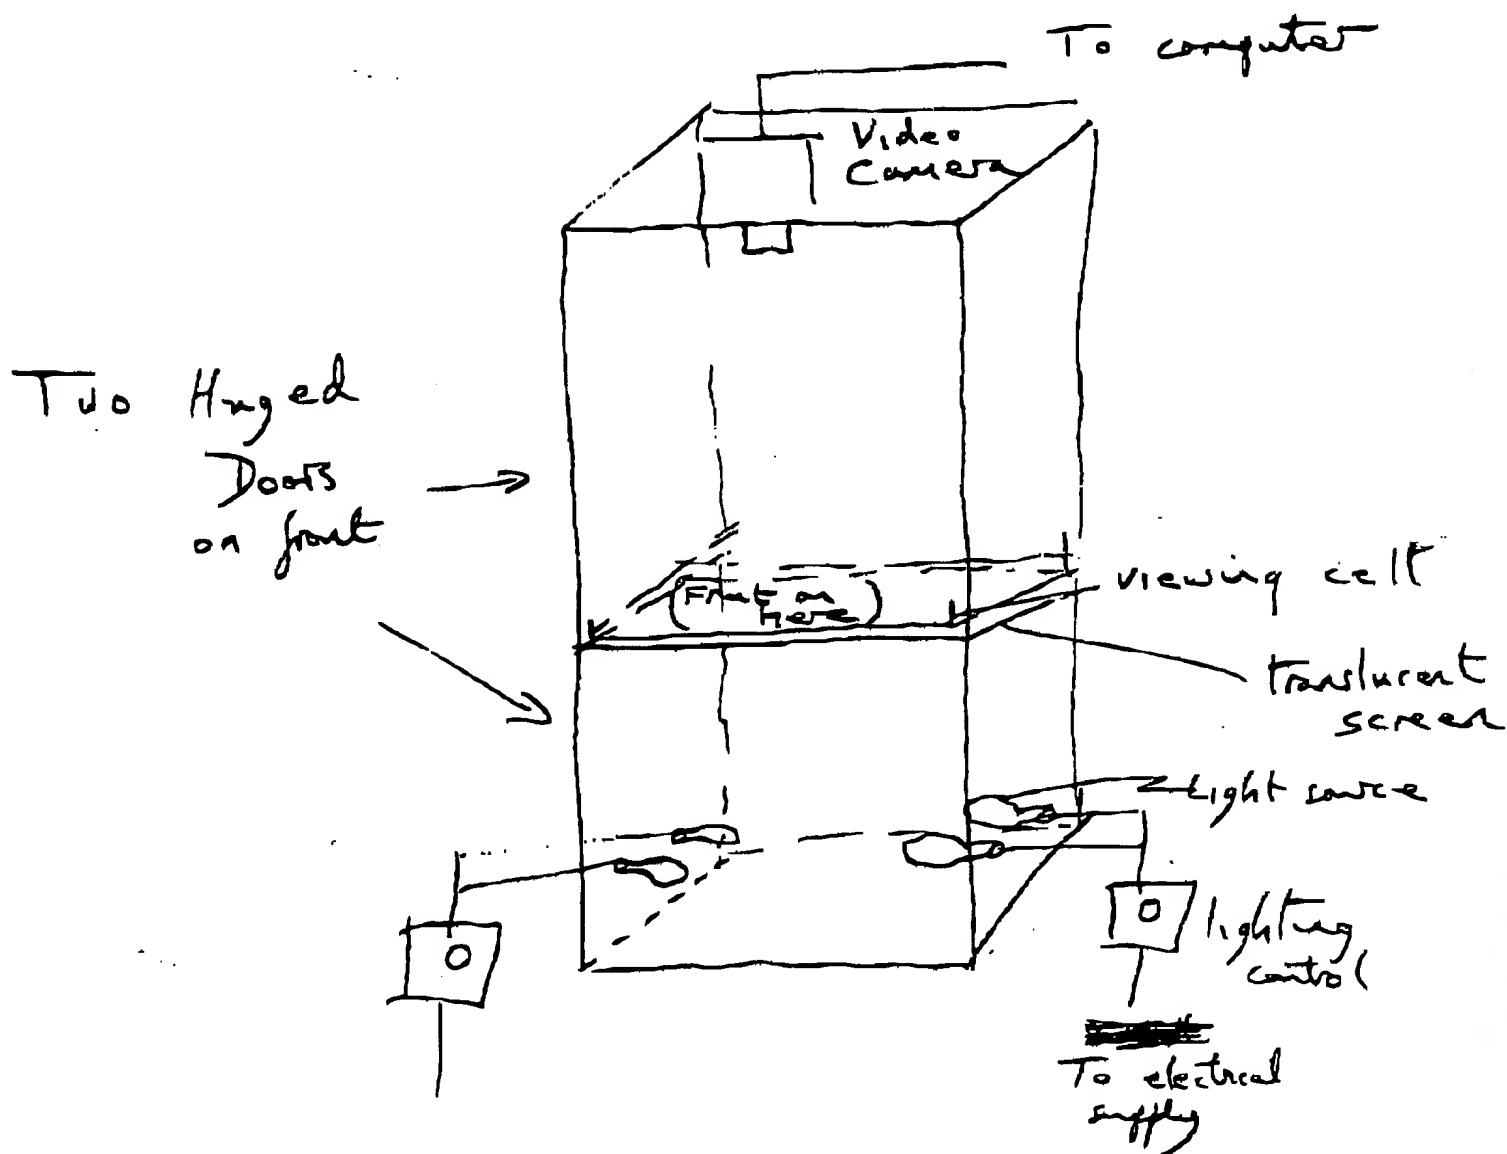 To computer
Video
Camera
Two Hinged
Doors
on front
viewing cell
(Front on
here)
translucent
screen
Light source
lighting
control
To electrical
supply